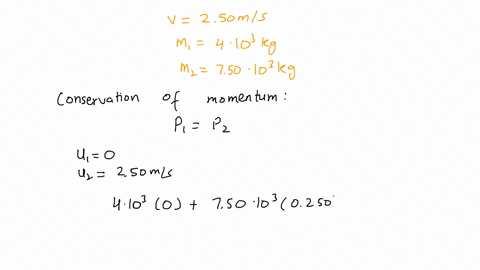 v = 2.50 m/s
m₁ = 4·10³ kg
m₂ = 7.50·10³ kg
Conservation of momentum:
P₁ = P₂
u₁ = 0
u₂ = 2.50 m/s
4·10³ (0) + 7.50·10³ (0.250